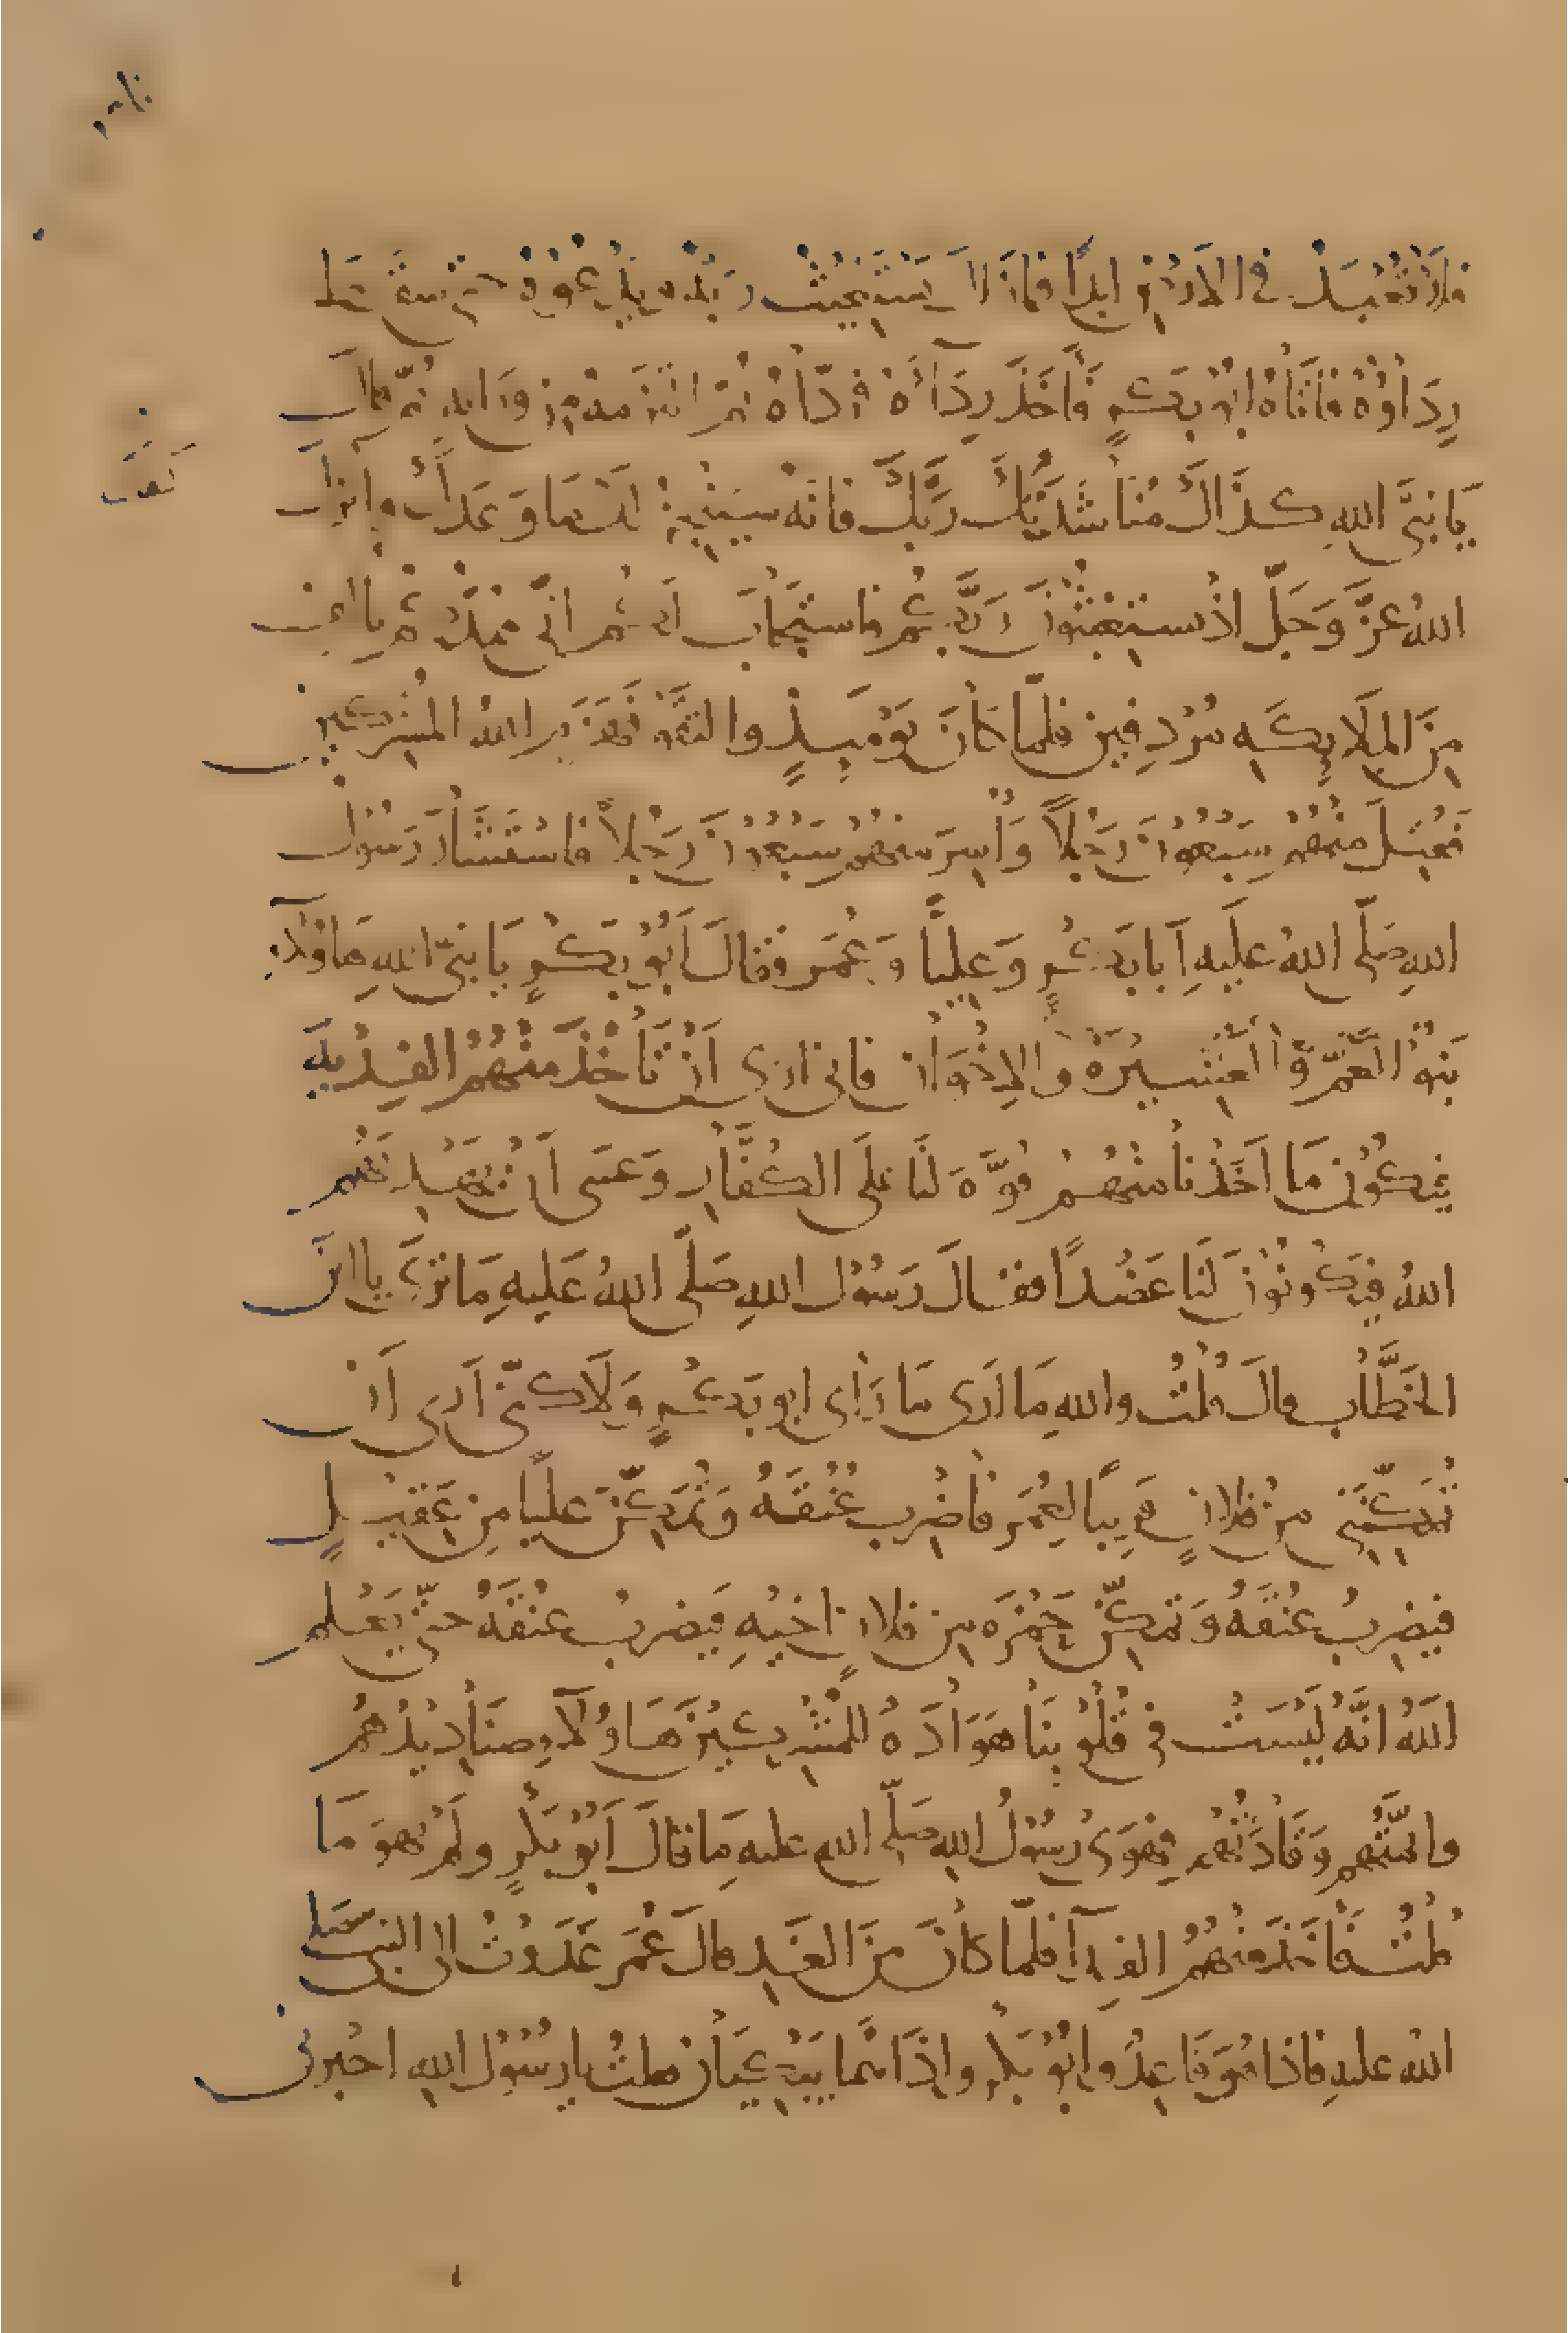 فلا تُعْبَدْ في الاَرْضِ ابدًا فما زَالَ يَسْتَغِيْثُ رَبَّهُ وَيَدْعُوْهُ حتى سَقَطَ
رِدَاؤُهُ فَاتَاهُ ابُوْ بَكْرٍ فَأَخَذَ رِدَآئَهُ فردّاهُ ثمَّ التَزَمَهُ مِن وَرَائِه ثُمَّ قالَ
يَا نَبِيَّ اللهِ كذَاكَ مُنَاشَدَتُكَ رَبَّكَ فانّه سَيُنْجِزُ لَكَ مَا وَعَدَكَ وانزلَ
اللهُ عزَّ وَجَلَّ اذْ تستغِيْثُوْنَ رَبَّكُمْ فاستَجَابَ لَكُمْ انّى مُمِدُّكُمْ بِالفٍ
مِنَ الملَايِكَهِ مُرْدِفِين فلمّا كَانَ يَوْمَيِذٍ والتقَوْا فَهَزَمَ اللهُ المشْرِكينَ
فَقُتِلَ مِنْهُمْ سَبْعُوْنَ رَجُلاً وَاُسِرَ مِنْهُمْ سَبْعُوْنَ رَجُلاً فاسْتَشَارَ رَسُوْلُ
اللهِ صَلّى اللهُ عليَهِ اَبا بَكْرٍ وَعَلِيًّا وَعُمَر فقَالَ اَبُوْ بَكْرٍ يَا نبىَّ اللهِ هَاؤلآءِ
بَنُوْ العَمِّ وَالعَشِيْرَةِ وَالاِخْوَانُ فانى ارَى اَنْ تَأْخُذَ مِنْهُمُ الفِدْيَهَ
فيَكُوْن مَا اَخَذْنَا مِنْهُمْ قُوَّهً لنَا عَلَى الكُفَّارِ وَعَسَى اَنْ يَهْدِيَهُم
اللهُ فيَكُونُوْنَ لَنَا عَضُدًا فقَالَ رَسُوْل اللهِ صَلّى اللهُ عَليهِ مَا تَرَى يا ابنَ
الخطَّابِ قالَ قُلْتُ واللهِ مَا اَرَى مَا رَاى ابو بَكْرٍ وَلَاكنّى اَرَى اَنْ
تُمَكِّنَنِى مِنْ فلانٍ قَرِيْبًا لِعُمَر فَأضْرِب عُنُقَهُ وَتُمَكِّنَ عليًّا مِن عَقِيْلٍ
فيضْرِبُ عُنُقَهُ وَتمَكِّن حَمْزَه مِن فلانٍ اخيْهِ فَيضربُ عنُقَهُ حتّى يَعْلم
اللهُ انَّهُ لَيْسَتْ فى قُلُوْبِنَا هَوَادَهٌ للمُشْرِكِيْنَ هَاؤُلآءِ صَنَادِيْدُهُمْ
وايمّتُهم وَقَادَتُهُم فهَوِىَ رَسُوْلُ اللهِ صَلّى الله عليه مَا قالَ اَبُوْ بَكْرٍ ولَمْ يَهْوَ مَا
قُلْتُ فَأَخَذَ مِنْهُمُ الفِدآ فلمّا كَانَ مِنَ الغَدِ قالَ عُمَر غَدَوْتُ الى النبى صلى
اللهُ عليهِ فاذا هُوَ قَاعِدٌ وابُوْ بَكْرٍ واذَا هُمَا يَبْكِيَانِ فقلتُ يا رسُوْل اللهِ اخْبِرنى